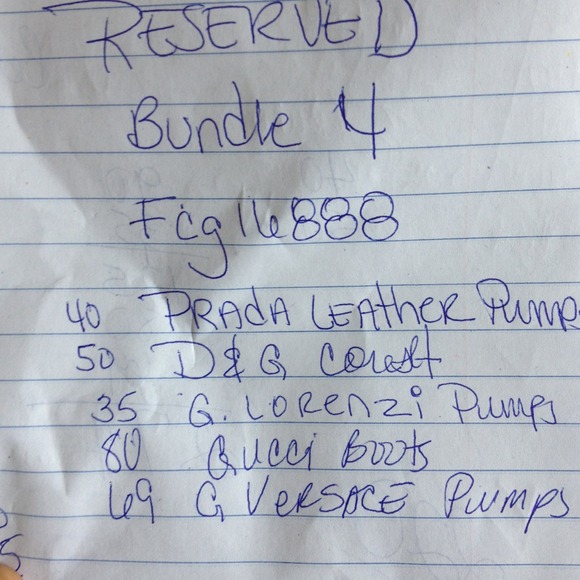 RESERVED
Bundle 4
Fcg16888
40 PRADA LEATHER Pump
50 D&G
35 G. LORENZI Pumps
80 GUCCI Boots
69 G VERSACE Pumps